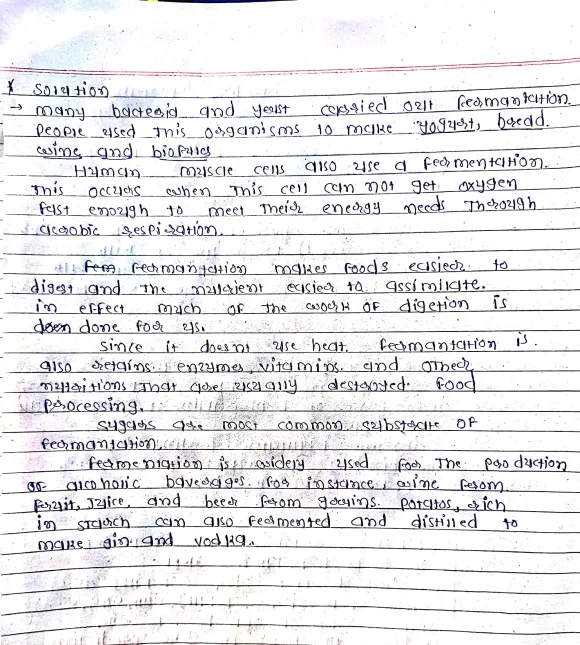 * Solation
→ many bacteria and yeast carried out fermantation.
People used This organisms to make yogurt, bread.
wine and biofules
Human muscle cells also use a fermentation.
This occurs when This cell can not get oxygen
fast enough to meet Their energy needs Through
aerobic respiration.
fermantation makes foods easier to
digest and the nutrient easier to assimilate.
in effect much of the work of digetion is
done for us.
Since it doesnt use heat. fermantation is.
also retains enzymes, vitamins. and other
nutritions That are usually destroyed. food
Processing.
sugars are most common substrate of
fermantation.
fermentation is widery used for The production
of alcoholic baverages. for instance, wine from
fruit, Juice, and beer from grains. Potatos, rich
in starch can also fermented and distilled to
make gin and vodka.